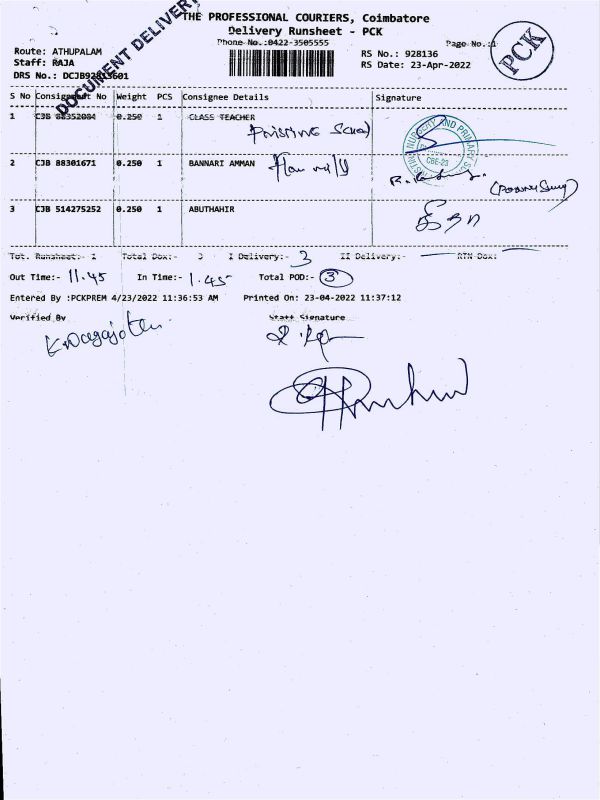 DOCUMENT DELIVERY
THE PROFESSIONAL COURIERS, Coimbatore
Delivery Runsheet - PCK
Phone No.:0422-3505555
Page No.:1
PCK
Route: ATHUPALAM
Staff: RAJA
RS No.: 928136
RS Date: 23-Apr-2022
S No Consignment No Weight PCS Consignee Details Signature
1 CJB 88352084 0.250 1 CLASS TEACHER
NURSERY AND PRIMARY
CBE-23
2 CJB 88301671 0.250 1 BANNARI AMMAN
3 CJB 514275252 0.250 1 ABUTHAHIR
Tot. Runsheet:- 1 Total Dox:- 3 I Delivery:- 3 II Delivery:- RTN Dox:
Out Time:- 11.45 In Time:- 1.45 Total POD:- 3
Entered By :PCKPREM 4/23/2022 11:36:53 AM Printed On: 23-04-2022 11:37:12
Verified By Staff Signature